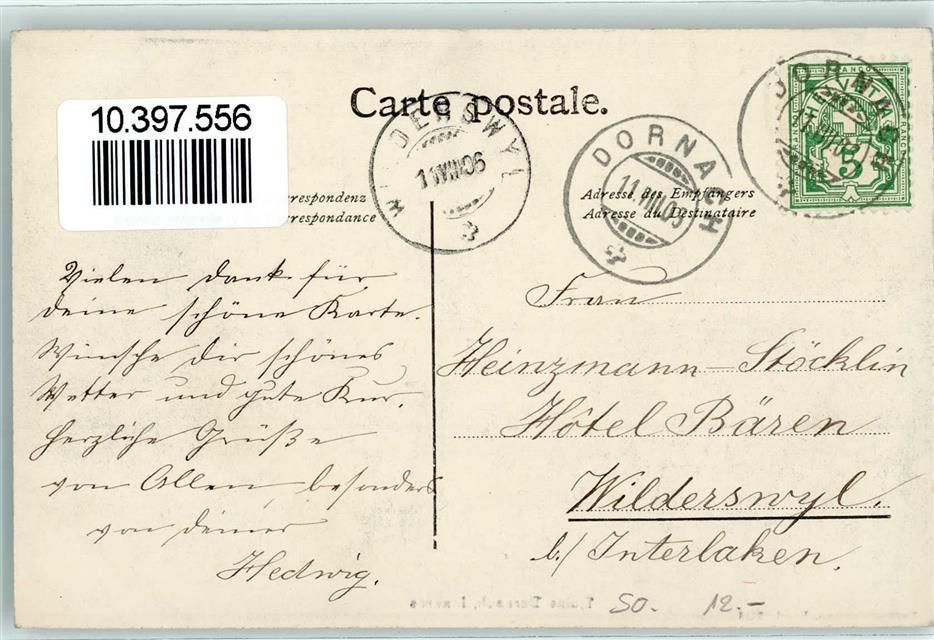 10.397.556
Carte postale.
DORNACH
11.VIII.06
WILDERSWYL
11.VIII.06
DORNACH
11.VIII.06
FRANCO
5
rrespondenz
rrespondance
Adresse des Empfängers
Adresse du Destinataire
Vielen Dank für
deine schöne Karte.
Wünsche dir schönes
Wetter und gute Kur.
Herzliche Grüße
von Allen, besonders
von deiner
Hedwig.
Frau
Heinzmann-Stöcklin
Hôtel Bären
Wilderswyl.
b./Interlaken.
SO. 12.-